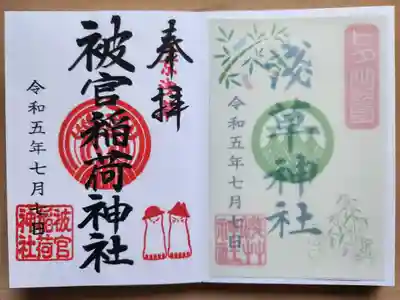 奉拝
被官稲荷神社
令和五年七月七日
被官
稲荷
神社
浅草神社
令和五年七月七日